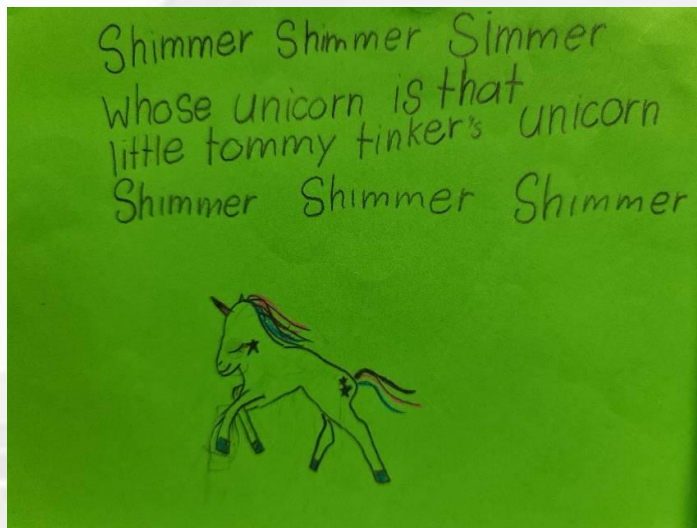 Shimmer Shimmer Simmer
whose unicorn is that
little tommy tinker's unicorn
Shimmer Shimmer Shimmer